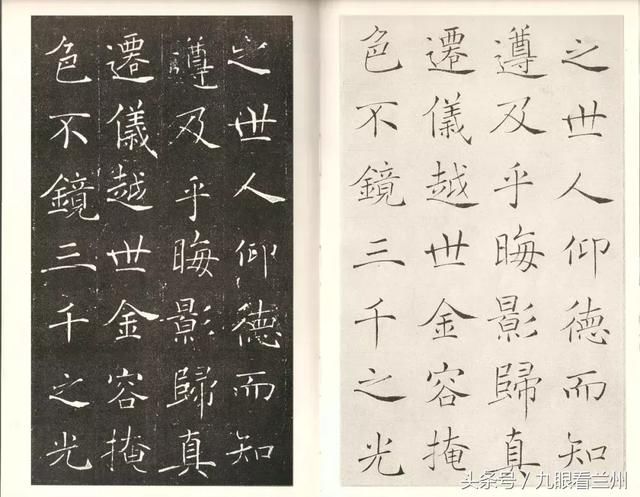 之世人仰德而知
遵及乎晦影歸真
遷儀越世金容掩
色不鏡三千之光
之世人仰德而知
遵及乎晦影歸真
遷儀越世金容掩
色不鏡三千之光
头条号 / 九眼看兰州